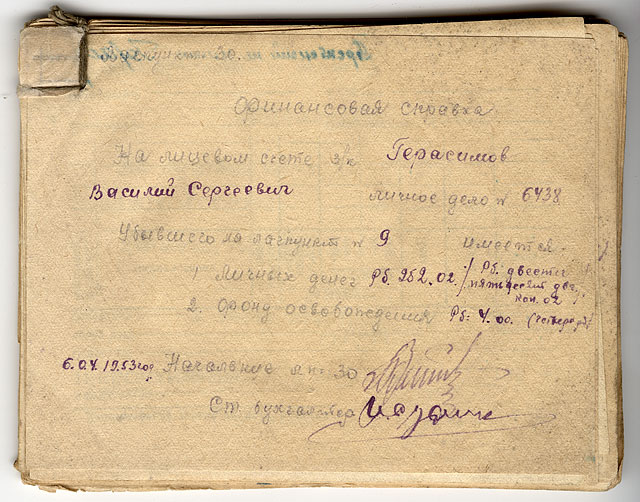 Финансовая справка
На лицевом счете з/к Герасимов
Василий Сергеевич личное дело № 6438
Убывшего на лагпункт № 9 имеется.
1 Личных денег Рб. 252.02. / Рб. двести
пятьдесят два,
коп. 02
2. Фонд освобождения Рб: 4.00. (четыре рб)
6.04.1953год Начальник лп 30
Ст. бухгалтер